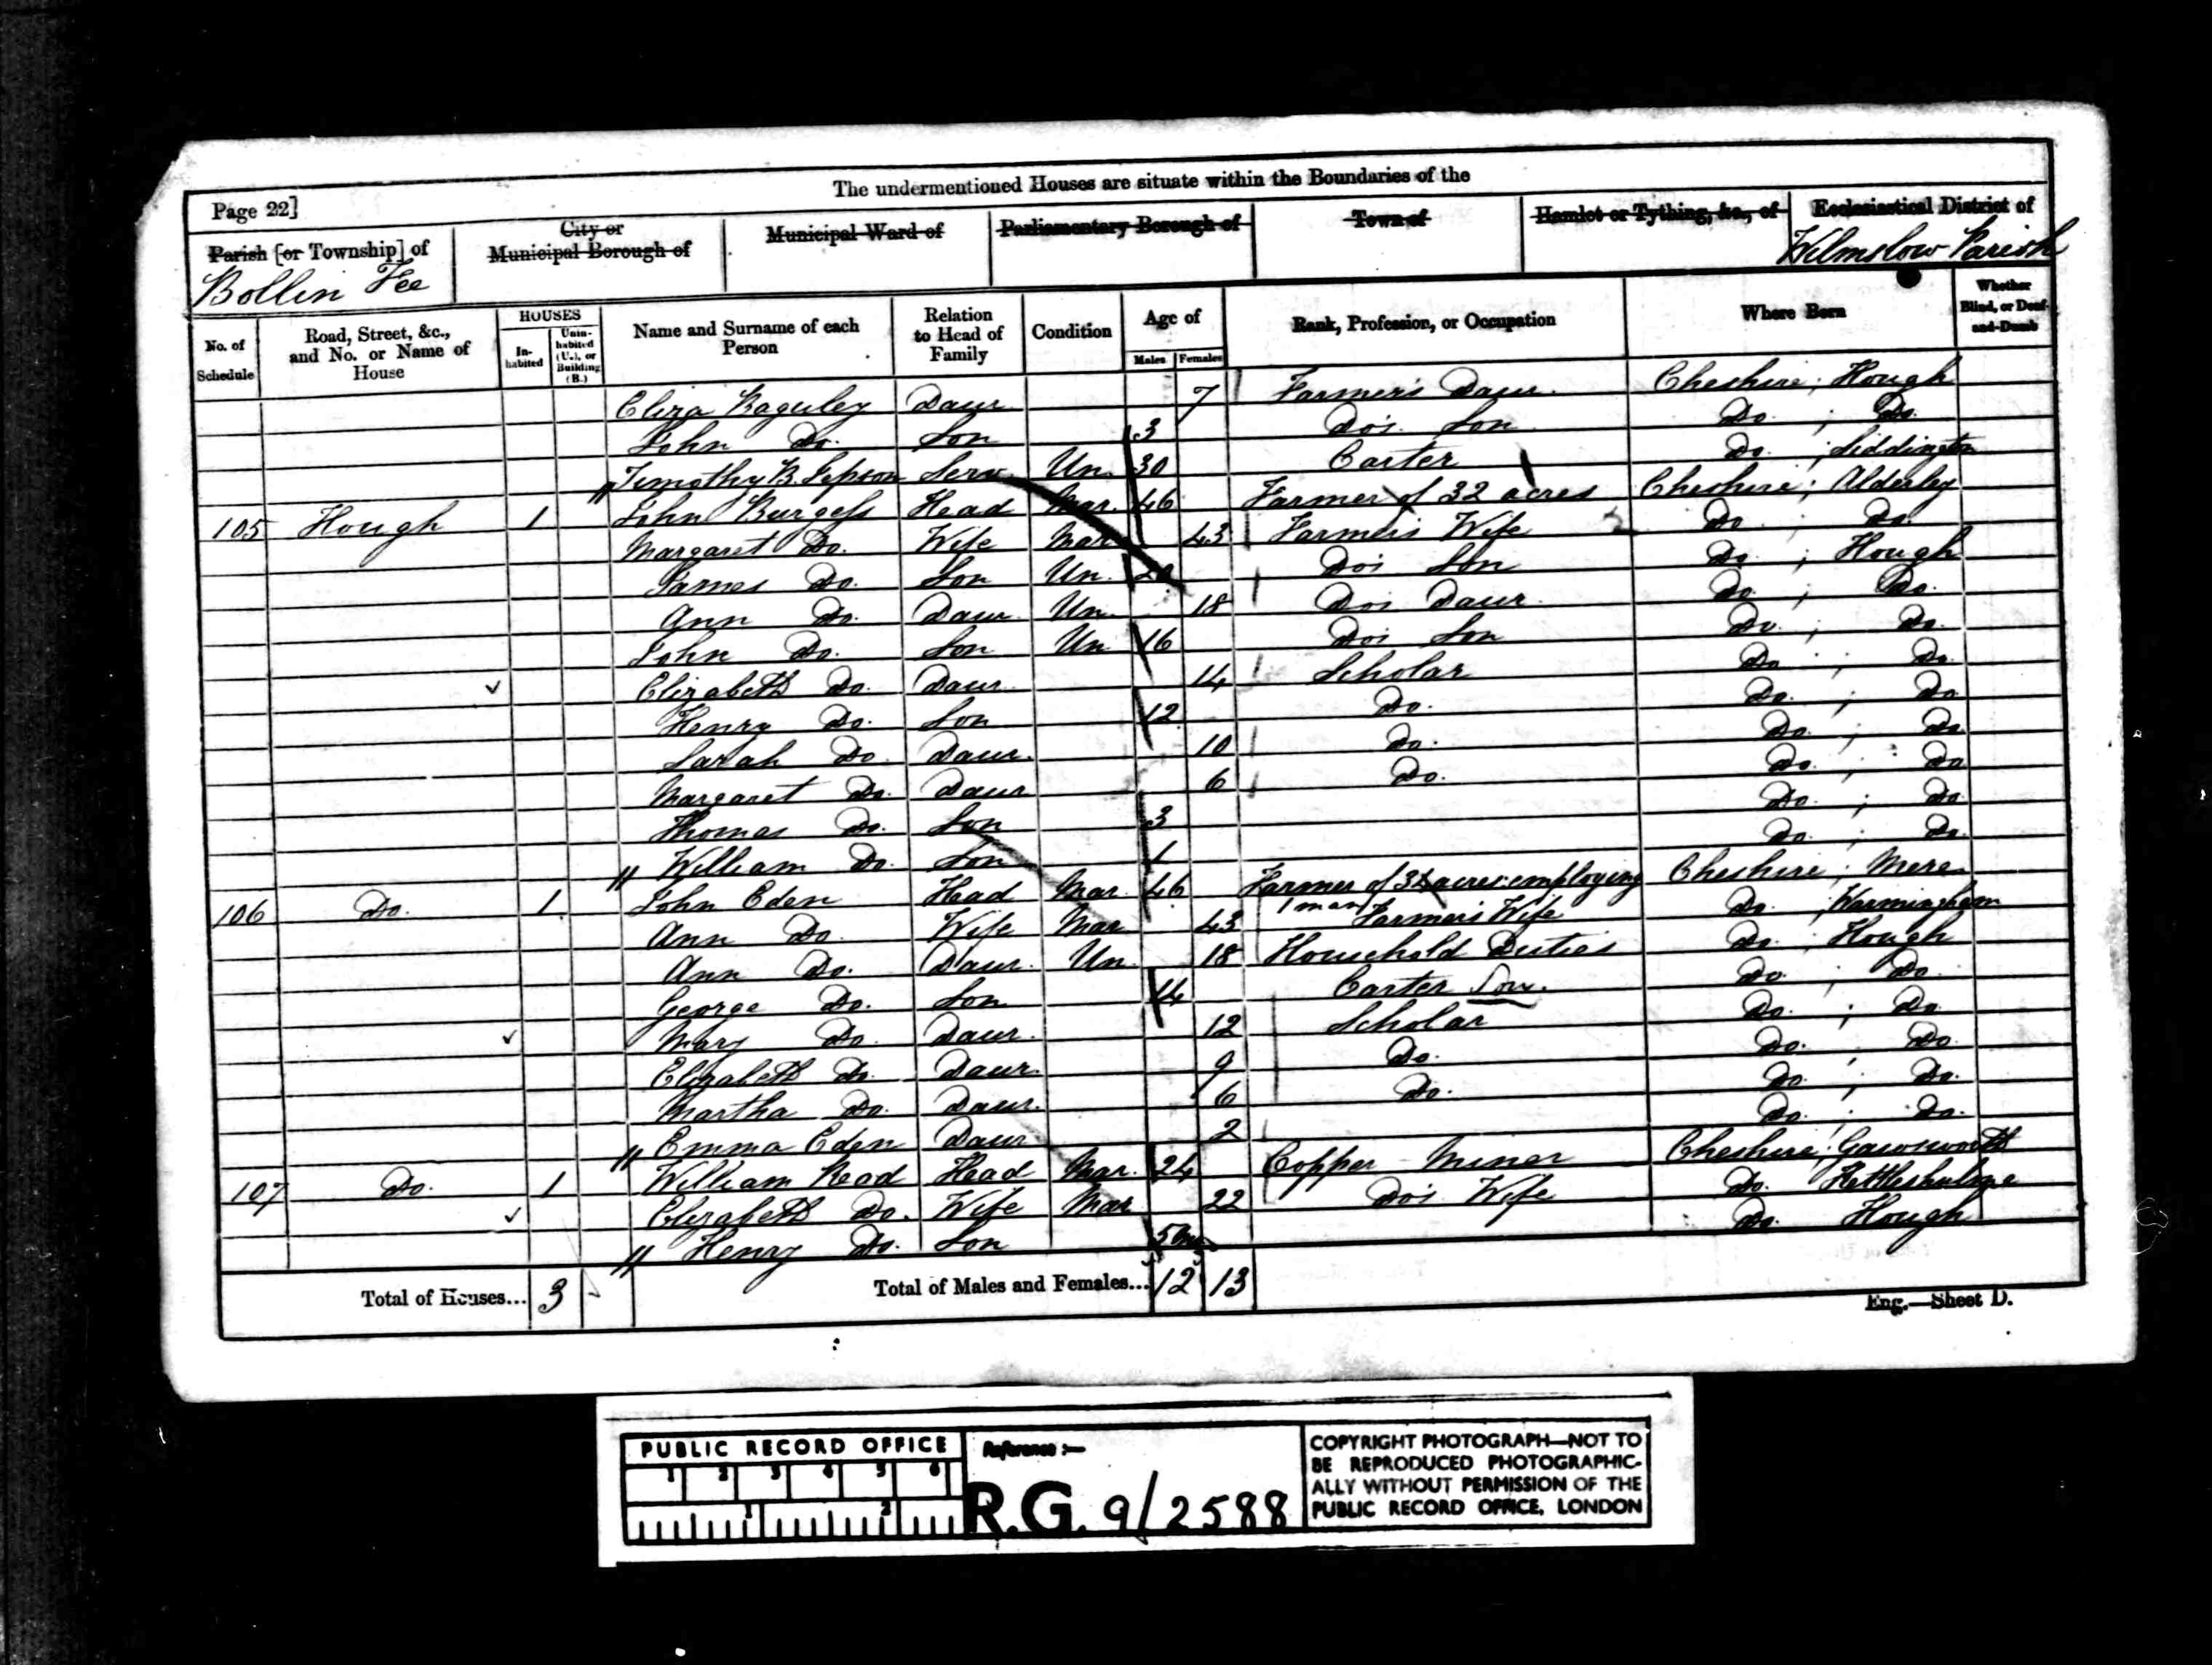 The undermentioned Houses are situate within the Boundaries of the
Page 22]
Parish [or Township] of
Bollin Fee
City or
Municipal Borough of
Municipal Ward of
Parliamentary Borough of
Town of
Hamlet or Tything, &c., of
Ecclesiastical District of
Wilmslow Parish
No. of
Schedule
Road, Street, &c.,
and No. or Name of
House
HOUSES
In-
habited
Unin-
habited
(U.), or
Building
(B.)
Name and Surname of each
Person
Relation
to Head of
Family
Condition
Age of
Males Females
Rank, Profession, or Occupation
Where Born
Whether
Blind, or Deaf-
and-Dumb
Eliza Baguley Daur 7 Farmer's Daur. Cheshire; Hough
John Do. Son 3 Do's Son Do. ; Do.
Timothy B. Jepson Serv Un. 30 Carter Do. ; Siddington
105 Hough 1 John Burgess Head Mar. 46 Farmer of 32 acres Cheshire; Alderley
Margaret Do. Wife Mar 43 Farmer's Wife Do ; Do.
James Do. Son Un. Do's Son Do ; Hough
Ann Do. Daur Un. 18 Do's Daur. Do ; Do.
John Do. Son Un 16 Do's Son Do. ; Do.
Elizabeth Do. Daur 14 Scholar Do ; Do.
Henry Do. Son 12 Do. Do. ; Do
Sarah Do Daur. 10 Do. Do. ; Do
Margaret Do. Daur 6 Do. Do. ; Do
Thomas Do. Son 3 Do. ; Do.
" William Do. Son 1 Do. ; Do.
106 Do. 1 John Eden Head Mar. 46 Farmer of 32 acres employing Cheshire; Mere
1 man
Ann Do Wife Mar 43 Farmer's Wife Do. ; Warmingham
Ann Do. Daur. Un. 18 Household Duties Do. ; Hough
George Do. Son 14 Carter Son. Do. ; Do.
Mary Do. Daur. 12 Scholar Do. ; Do.
Elizabeth Do. Daur. 9 Do. Do. ; Do.
Martha Do. Daur. 6 Do. Do. ; Do.
" Emma Eden Daur 2 Do. ; Do.
107 Do. 1 William Read Head Mar. 24 Copper Miner Cheshire; Gawsworth
Elizabeth Do. Wife Mar 22 Do's Wife Do. Kettleshulme
" Henry Do. Son 5 Mo Do. Hough
Total of Houses... 3
Total of Males and Females... 12 13
Eng.—Sheet D.
PUBLIC RECORD OFFICE
1 2 3 4 5 6
1 2
Reference :—
R.G. 9/2588
COPYRIGHT PHOTOGRAPH—NOT TO
BE REPRODUCED PHOTOGRAPHIC-
ALLY WITHOUT PERMISSION OF THE
PUBLIC RECORD OFFICE, LONDON